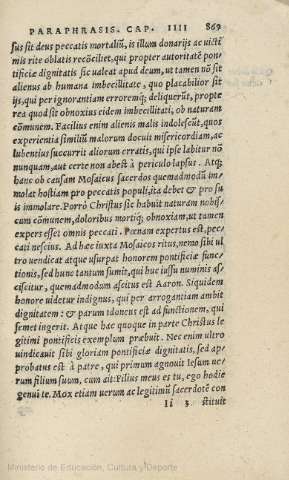 PARAPHRASIS. CAP. IIII 869
sus sit deus peccatis mortaliũ, is illum donarijs ac uicti
mis rite oblatis recõciliet, qui propter autoritatẽ pon
tificiæ dignitatis sic ualeat apud deum, ut tamen nõ sit
alienus ab humana imbecillitate, quo placabilior sit
ijs, qui per ignorantiam erroremq; deliquerũt, propte
rea quod sit obnoxius eidem imbecillitati, ob naturam
cõmunem. Facilius enim alienis malis indolescũt, quos
experientia similiũ malorum docuit misericordiam, ac
lubentius succurrit aliorum erratis, qui ipse labitur nõ
nunquam, aut certe non abest à periculo lapsus. Atq;
hanc ob causam Mosaicus sacerdos quemadmodũ im
molat hostiam pro peccatis populi, ita debet & pro su
is immolare. Porrò Christus sic habuit naturam nobis
cum cõmunem, doloribus mortiq; obnoxiam, ut tamen
expers esset omnis peccati. Pœnam expertus est, pec
cati nescius. Ad hæc iuxta Mosaicos ritus, nemo sibi ul
tro uendicat atque usurpat honorem pontificiæ func
tionis, sed hunc tantum sumit, qui huc iussu numinis as
ciscitur, quemadmodum ascitus est Aaron. Siquidem
honore uidetur indignus, qui per arrogantiam ambit
dignitatem: & parum idoneus est ad functionem, qui
semet ingerit. Atque hac quoque in parte Christus le
gitimi pontificis exemplum præbuit. Nec enim ultro
uindicauit sibi gloriam pontificiæ dignitatis, sed ap
probatus est à patre, qui primum agnouit Iesum ue
rum filium suum, cum ait: Filius meus es tu, ego hodie
genui te. Mox etiam uerum ac legitimũ sacerdotẽ con
Ii 3 stituit
Ministerio de Educación, Cultura y Deporte